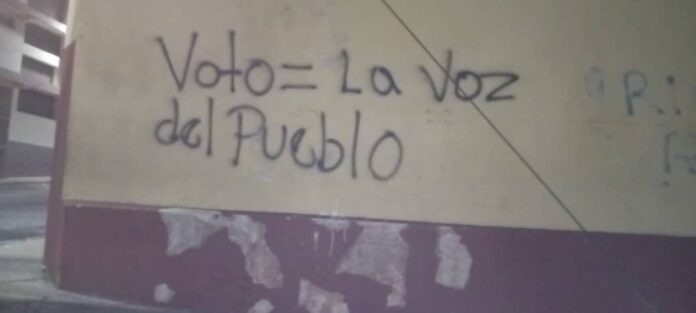 Voto = La Voz
del Pueblo